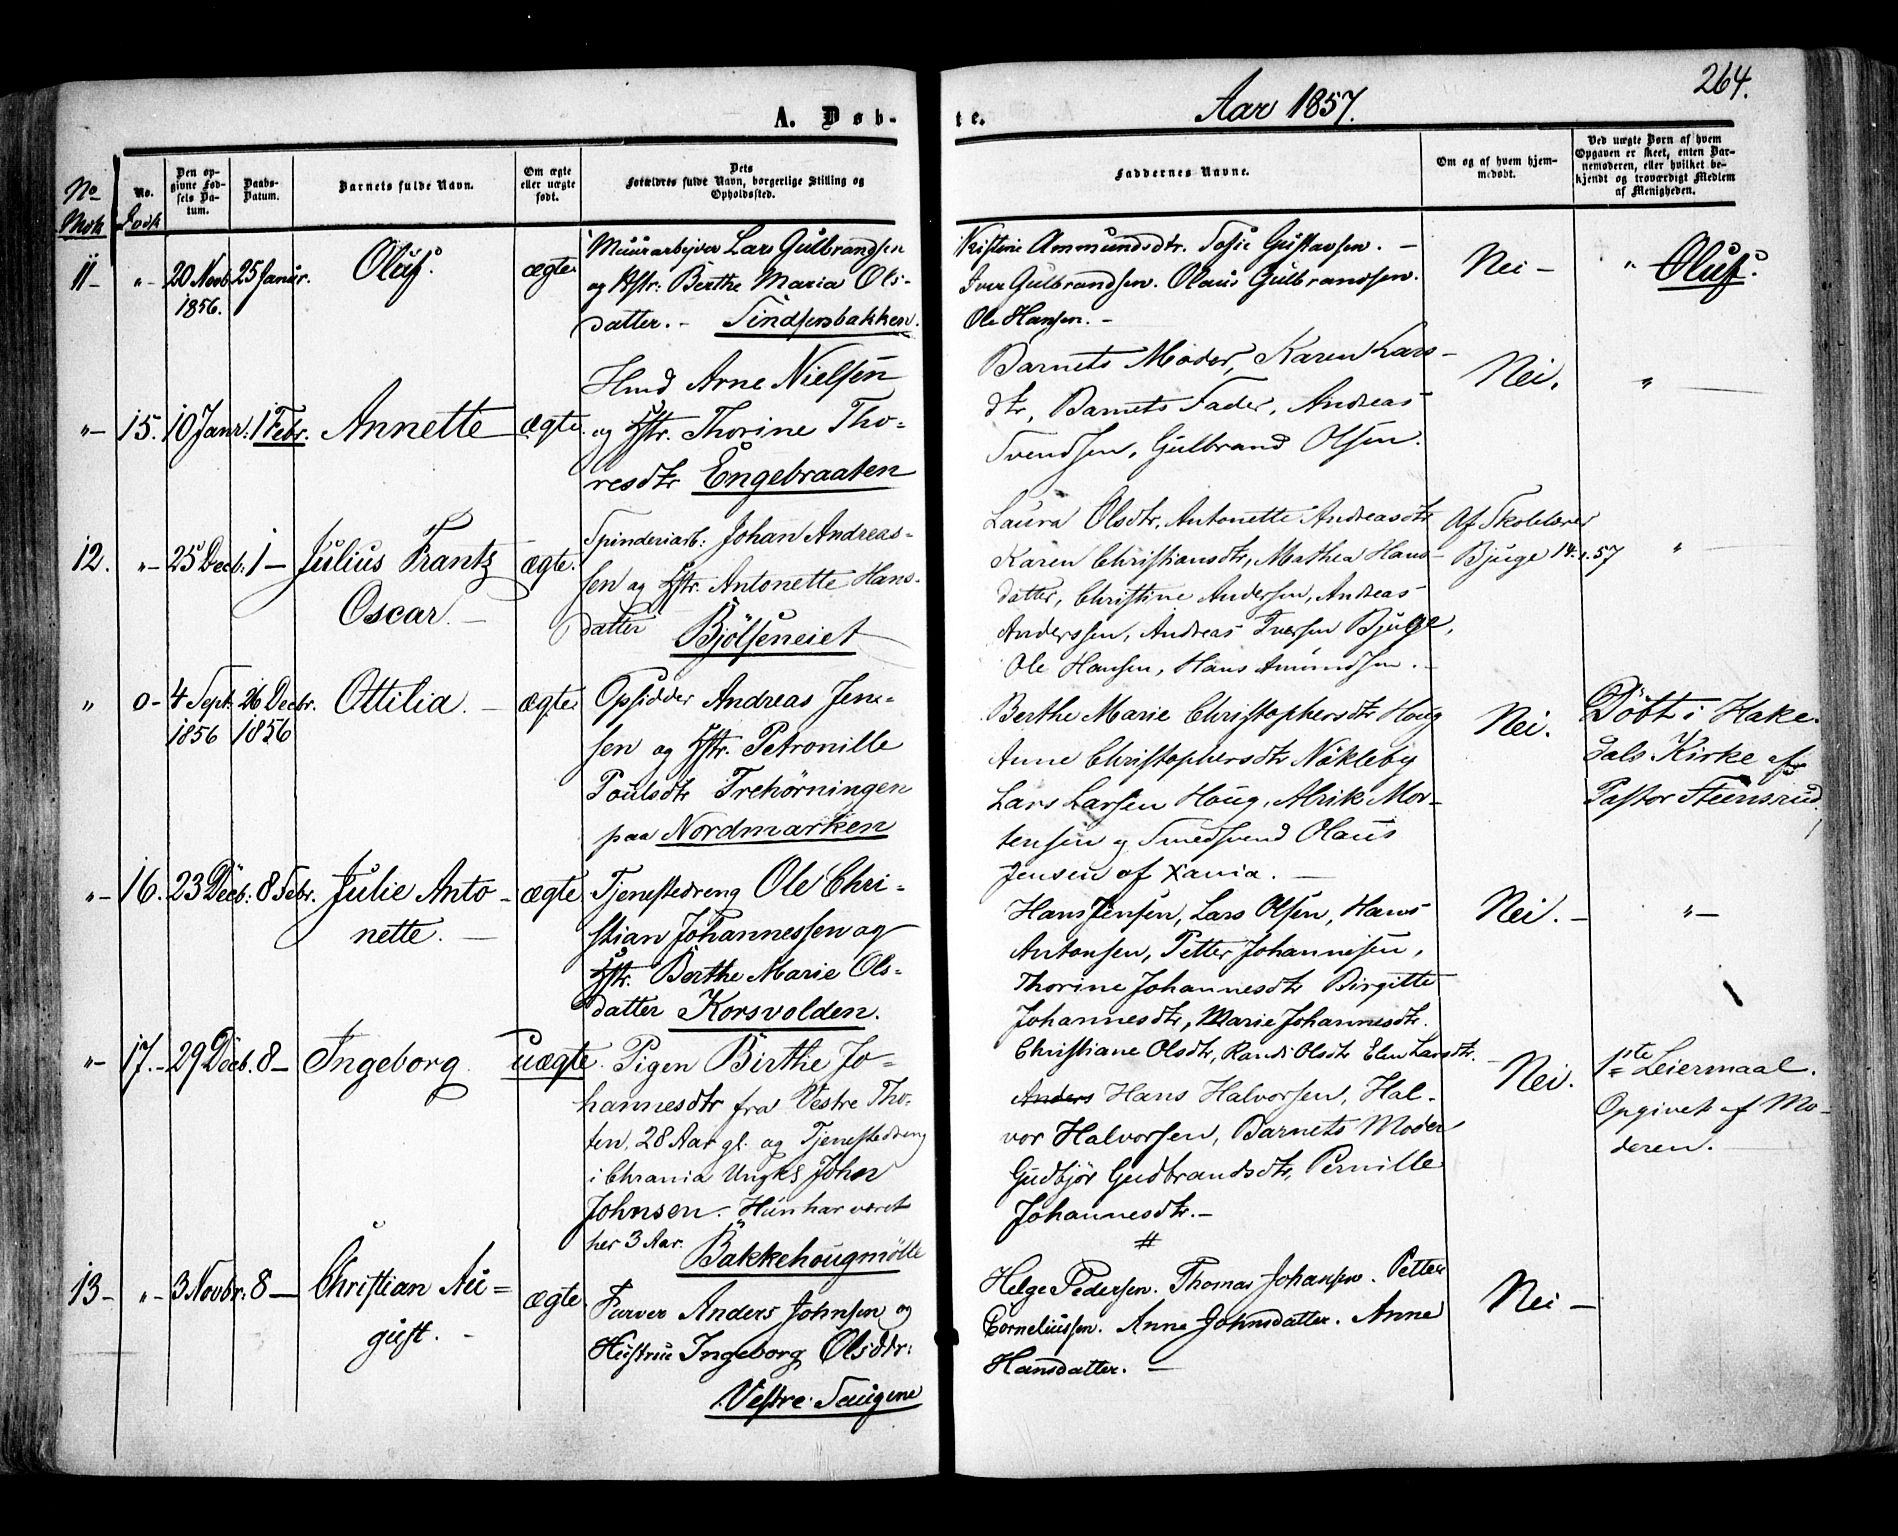 264.
A. Døb-
te.
Aar 1857.
No
Mdk
No.
Qvdk
Den op-
givne Fød-
sels Da-
tum.
Daabs-
Datum.
Barnets fulde Navn.
Om ægte
eller uægte
født.
Dets
Forældres fulde Navn, borgerlige Stilling og
Opholdssted.
Faddernes Navne.
Om og af hvem hjem-
medøbt.
Ved uægte Børn af hvem
Opgaven er skeet, enten Bar-
nemoderen, eller hvilket be-
kjendt og troværdigt Medlem
af Menigheden.
11 - " - 20 Novb. 25 Janur. Oluf. ægte
1856.
Muurarbejder Lars Gulbrandsen
og Hstr: Berthe Maria Ols-
datter. - Tindsensbakken.
Kristine Ammundsdtr. Sofie Gustavsen. -
Iver Gulbrandsen. Olaus Gulbrandsen.
Ole Hansen. -
Nei -
" Oluf.
" - 15. 10 Janr: 1 Febr. Annette ægte.
Hmd Arne Nielsen
og Hstr. Thorine Tho-
resdtr Engebraaten
Barnets Moder, Karen Lars-
dtr, Barnets Fader, Andreas
Svendsen, Gulbrand Olsen.
Nei.
"
12. " - 25 Decb. 1 - Julius Frantz ægte.
Oscar. -
Spinderiarb: Johan Andreas-
sen og Hstr. Antonette Hans-
datter Bjölseneiet
Laura Olsdtr, Antonette Andreasdtr
Karen Christiansdtr, Mathea Hans-
datter, Christine Andersen, Andreas
Anderssen, Andreas Iversen Bjuge,
Ole Hansen, Hans Amundsen. -
Af Skolelærer
Bjuge 14.1.57
"
" 0 - 4 Sept. 26 Decbr. Ottilia. - ægte
1856 1856
Opsidder Andreas Jen-
sen og Hstr. Petronille
Poulsdtr Trehörningen
paa Nordmarken
Berthe Marie Christophersdtr Houg
Anne Christophersdtr Näkleby
Lars Larsen Houg, Alrik Mor-
tensen og Smedsvend Olaus
Jensen af Xania. -
Nei.
Döbt i Hake-
dals Kirke af
Pastor Steensrud
" - 16. 23 Decb: 8 Febr. Julie Anto- ægte
nette. -
Tjenestedreng Ole Chri-
stian Johannessen og
Hstr. Berthe Marie Ols-
datter Korsvolden.
Hans Jensen, Lars Olsen, Hans
Antonsen, Petter Johannesen,
Thorine Johannesdtr Birgitte
Johannesdtr, Marie Johannesdtr.
Nei. -
" -
" - 17. - 29 Decb. 8 - Ingeborg. uægte.
Pigen Birthe Jo-
hannesdtr fra Vestre Tho-
ten, 28 Aar gl. og Tjenestedreng
i Chrania Ungks Johan
Johnsen. - Hun har været
her 3 Aar. Bakkehougmølle
Christiane Olsdtr, Randi Olsdtr Elen Larsdtr.
Anders Hans Halvorsen, Hal-
vor Halvorsen, Barnets Moder
Gudbjör Gudbrandsdtr, Pernille
Johannesdtr. -
#
Nei.
1ste Leiermaal.
Opgivet af Mo-
deren. -
13 - " - 3 Novbr: 8 - Christian Au- ægte
gust. -
Farver Anders Johnsen og
Hustrue Ingeborg Olsdtr:
Vestre Saugene
Helge Pedersen. Thomas Johansen. Petter
Corneliussen. Anne Johnsdatter. Anne
Hansdatter. -
Nei -